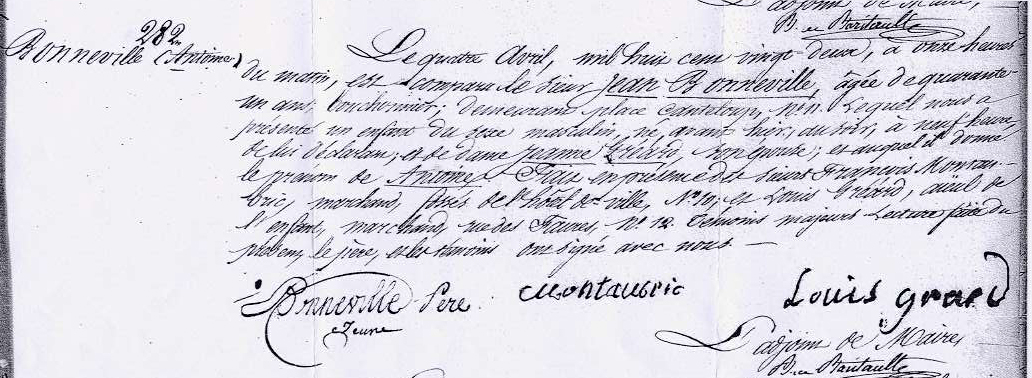 L'adjoint de Maire,
B. de Baritault
282
Bonneville (Antoine)
Le quatre Avril, mil huit cent vingt deux, à onze heures
du matin, est comparu le Sieur Jean Bonneville, âgée de quarante
un ans, bouchonnier; demeurant place Canteloup, n.º 11. Lequel nous a
présenté un enfant du sexe masculin, né avant hier, au soir, à neuf heures,
de lui déclarant; et de dame Jeanne Gréard, son épouse; et auquel il donne
le prenom de Antoine. Fait en présence des Sieurs François Montau-
bric, marchand, fossés de l'hôtel de ville, N.º 19; et Louis Gréard, ayeul de
l'enfant, marchand, rue des Faures, N.º 12. témoins majeurs Lecture faite du
présent, le père, et les témoins ont signé avec nous —
Bonneville Père
Jeune
Montaubric
Louis grard
L'adjoint de Maire,
B. de Baritault